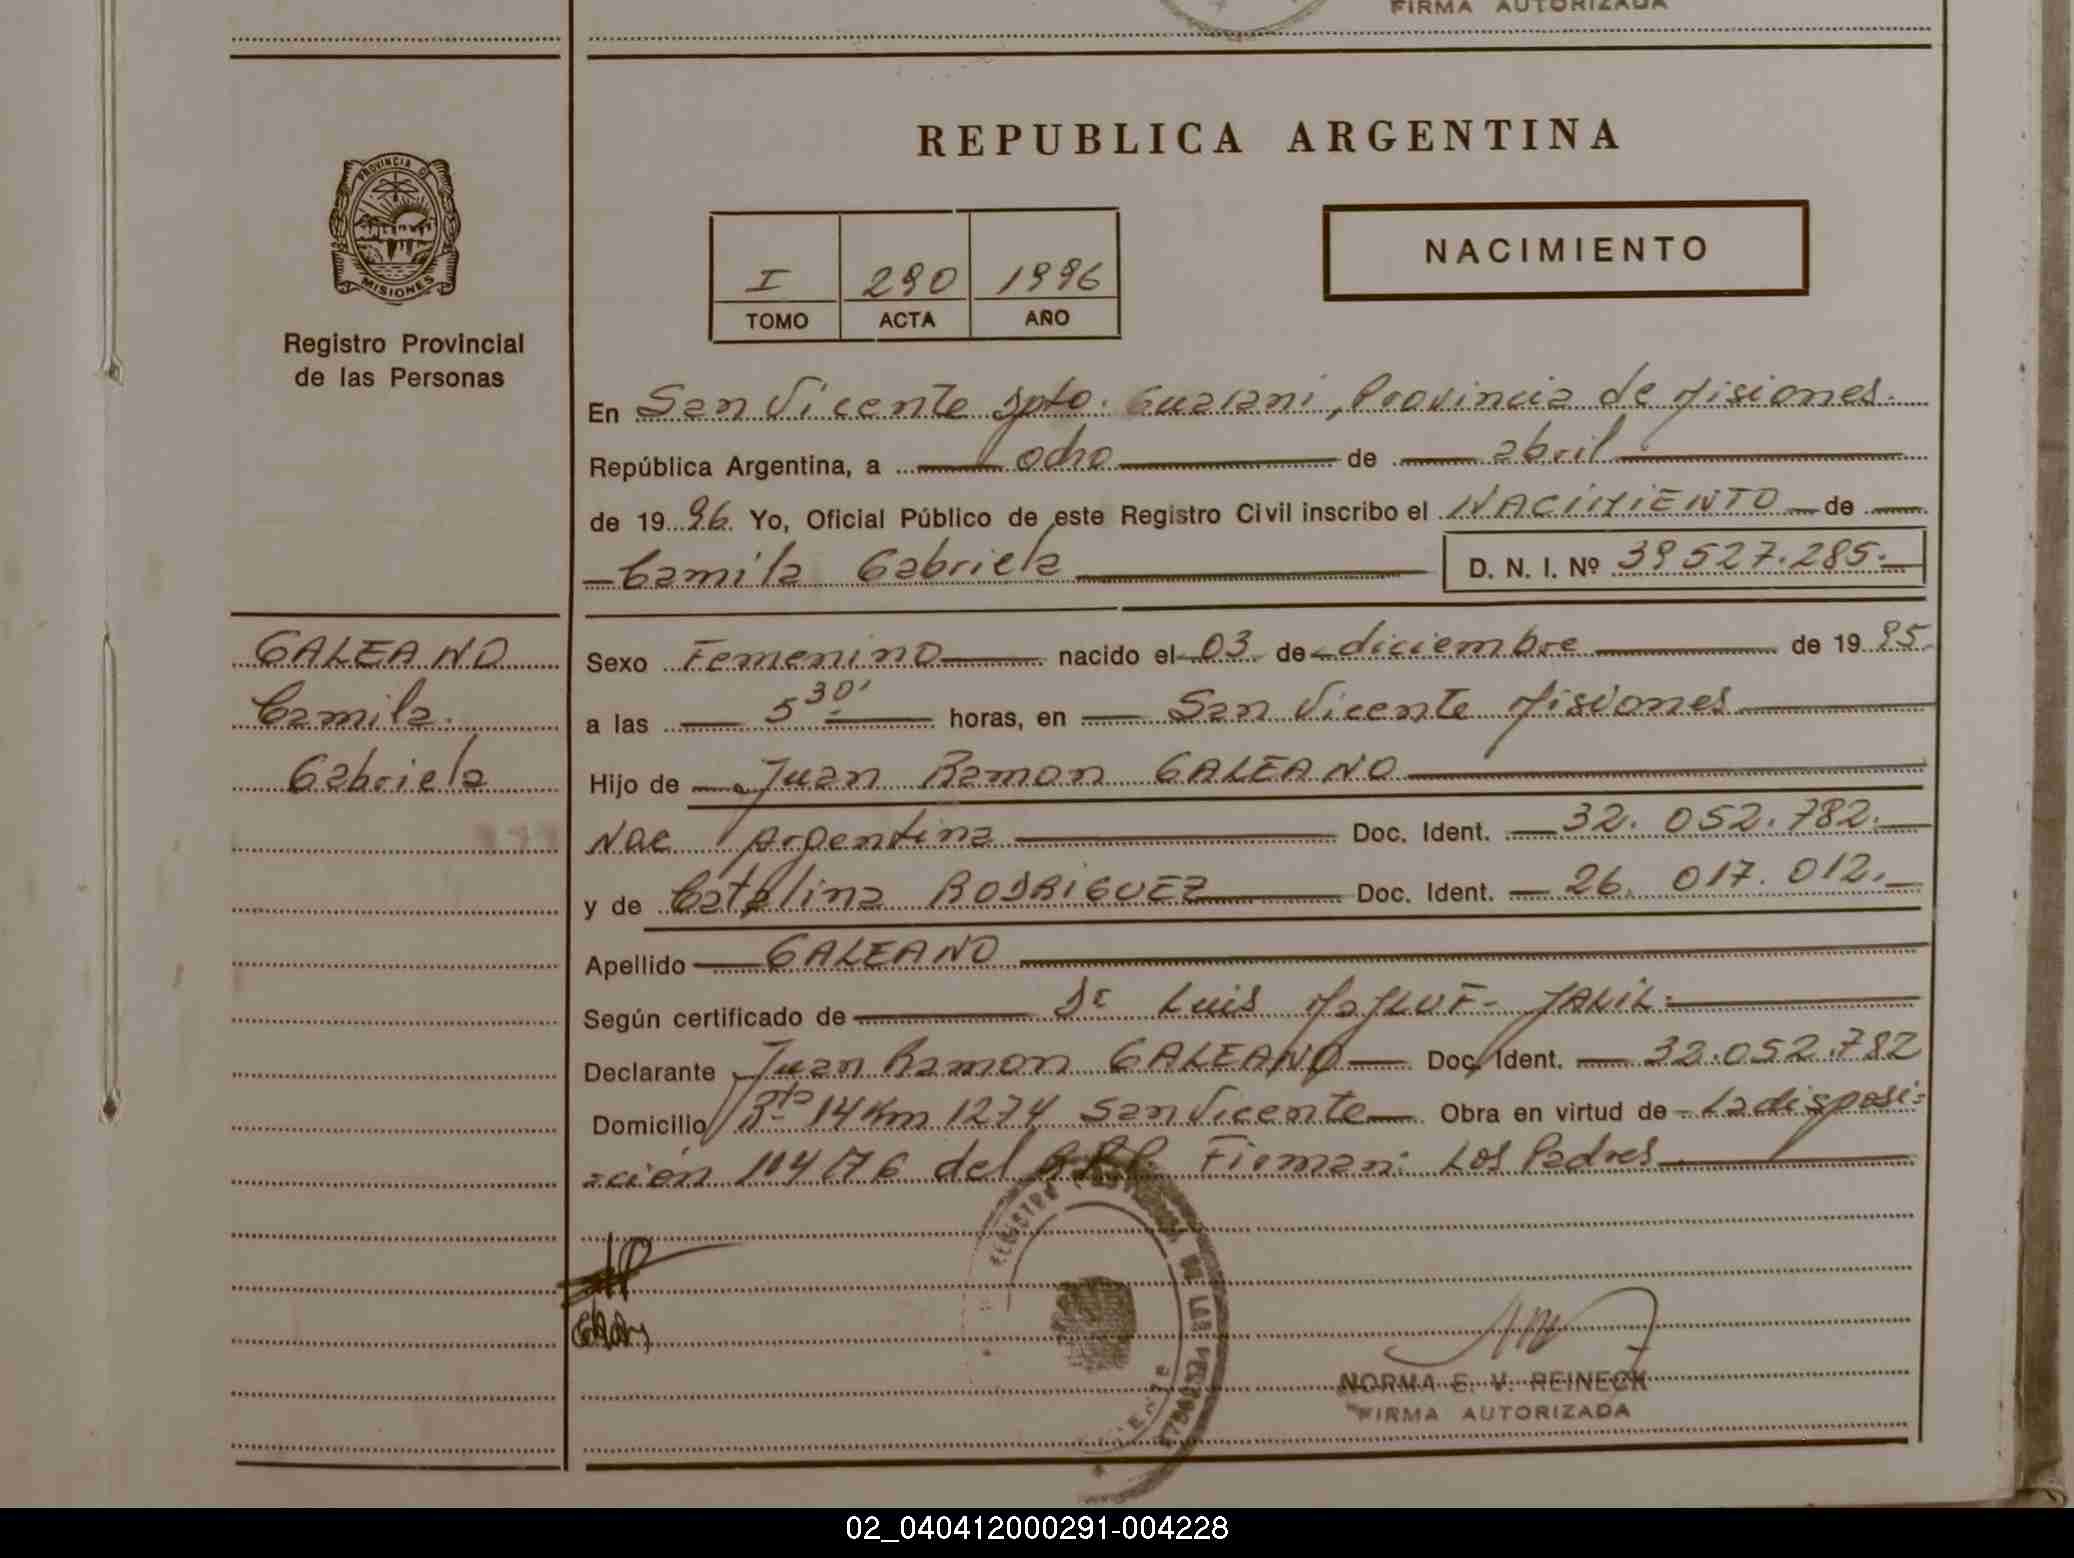 FIRMA AUTORIZADA
REPUBLICA ARGENTINA
PROVINCIA DE
MISIONES
Registro Provincial
de las Personas
I 290 1996
TOMO ACTA AÑO
NACIMIENTO
En San Vicente Dpto. Guarani, Provincia de Misiones.
República Argentina, a ocho de abril
de 1996. Yo, Oficial Público de este Registro Civil inscribo el NACIMIENTO de
Camila Gabriela D. N. I. Nº 39527.285.
GALEANO
Camila
Gabriela
Sexo Femenino nacido el 03 de diciembre de 1995.
a las 5 30' horas, en San Vicente Misiones
Hijo de Juan Ramon GALEANO
Nac Argentina Doc. Ident. 32. 052. 782.
y de Catalina RODRIGUEZ Doc. Ident. 26. 017. 012.
Apellido GALEANO
Según certificado de Dr Luis JALIL.
Declarante Juan Ramon GALEANO Doc. Ident. 32.052.782
Domicilio Rta 14 Km 1274 San Vicente Obra en virtud de La disposi=
=ción 104/76 del R.P.P. Firman: Los Padres
NORMA E. V. REINECK
FIRMA AUTORIZADA
02_040412000291-004228